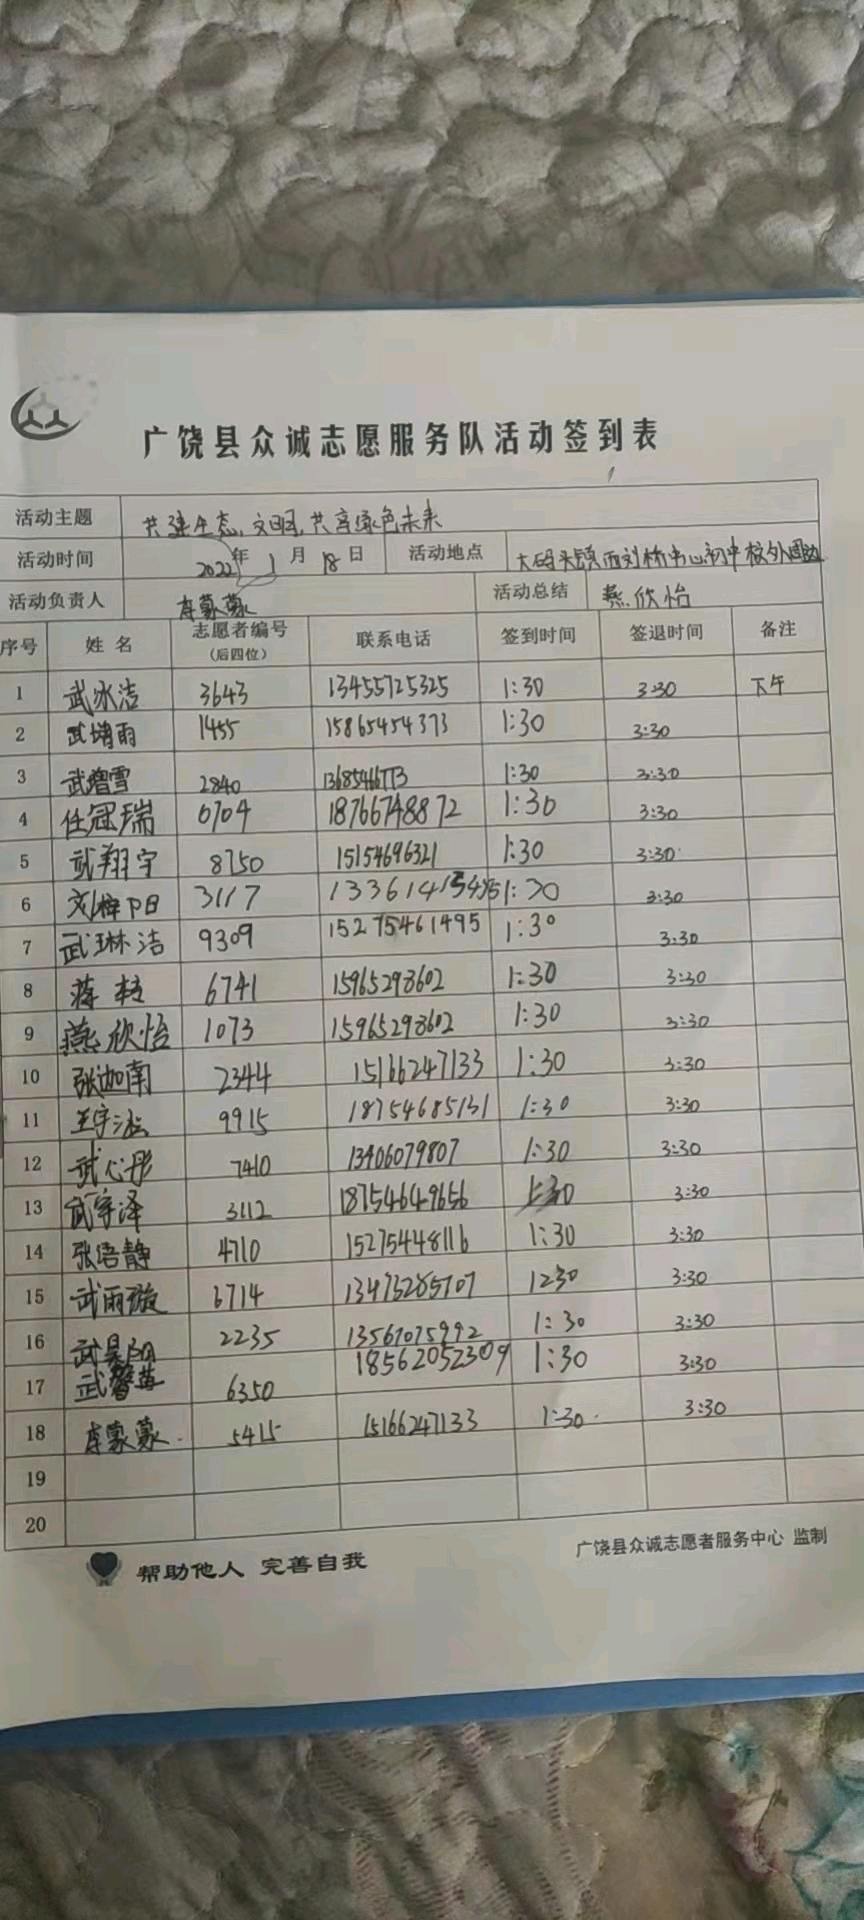 广饶县众诚志愿服务队活动签到表
活动主题 共建生态,文明,共享绿色未来
活动时间 2022年 1月 18日 活动地点 大码头镇西刘桥中心初中校外周边
活动负责人 李蒙蒙 活动总结 燕欣怡
序号 姓名 志愿者编号(后四位) 联系电话 签到时间 签退时间 备注
1 武冰洁 3643 13455725325 1:30 3:30 下午
2 武增雨 1455 15865454373 1:30 3:30
3 武增雪 2840 13685466773 1:30 3:30
4 任冠瑞 0704 18766748872 1:30 3:30
5 武翔宇 8750 15154696321 1:30 3:30
6 3117 1:30 3:30
7 武琳洁 9309 15275461495 1:30 3:30
8 蒋 6741 15965298602 1:30 3:30
9 燕欣怡 1073 15965298602 1:30 3:30
10 张迦南 2344 15166247133 1:30 3:30
11 王宇 9915 18754685131 1:30 3:30
12 武心彤 7410 13406079807 1:30 3:30
13 武宇泽 3112 18754649656 1:30 3:30
14 张浯静 4710 15275448116 1:30 3:30
15 武雨璇 6714 1230 3:30
16 武昊阳 2235 13561075992 1:30 3:30
17 武馨苒 6350 18562052309 1:30 3:30
18 李蒙蒙 5415 15166247133 1:30 3:30
19
20
帮助他人 完善自我
广饶县众诚志愿者服务中心 监制